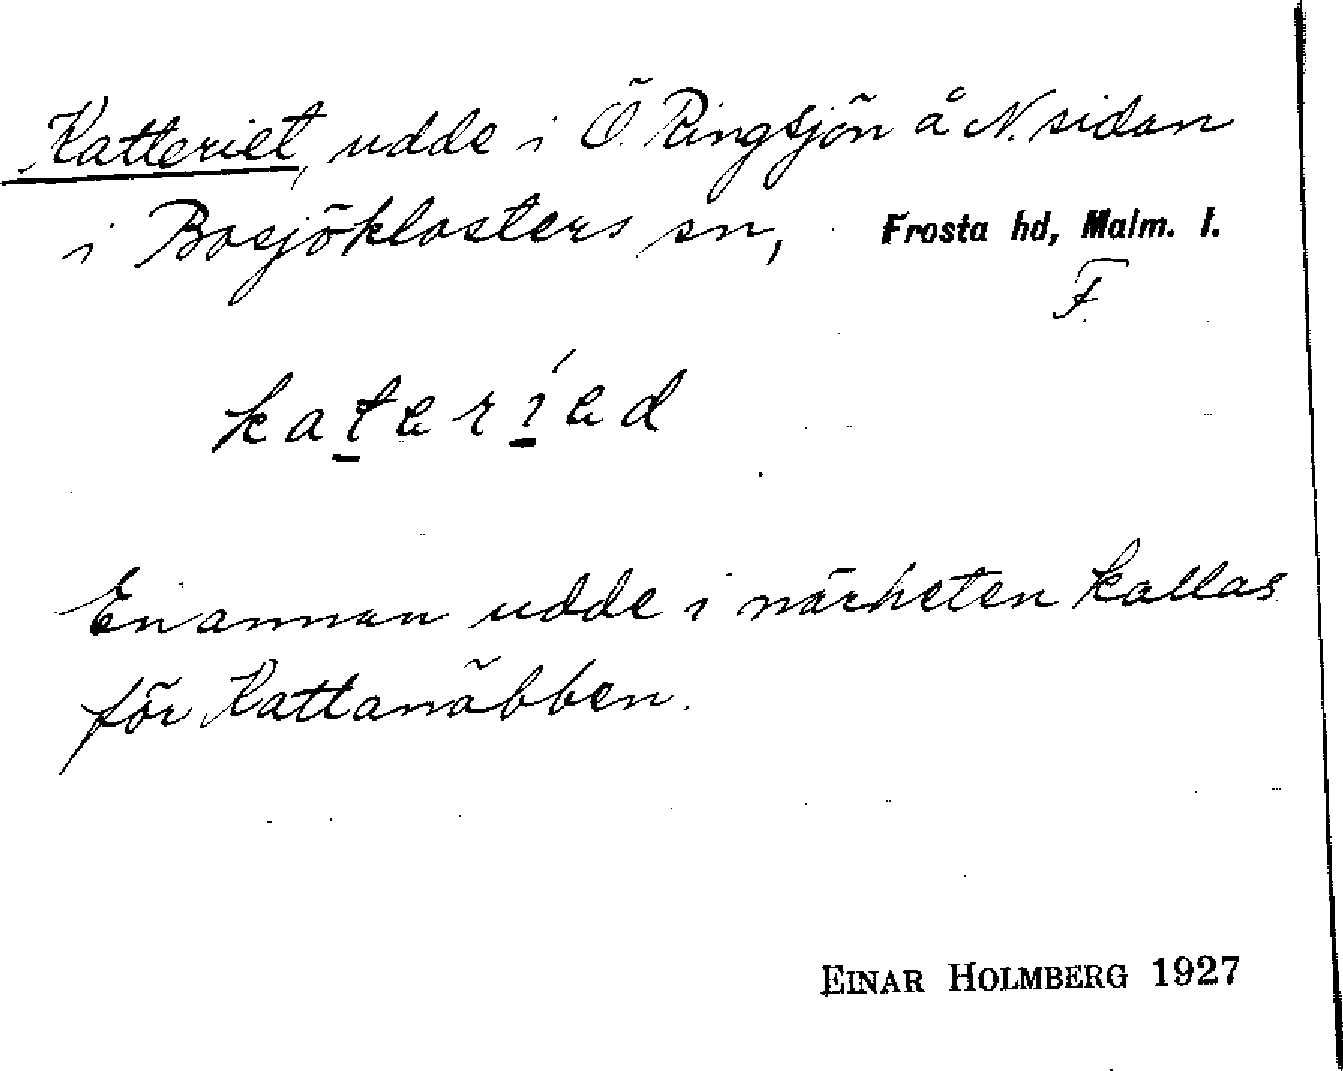 Katteriet, udde i Ö. Ringsjön å N. sidan
i Bosjöklosters sn, Frosta hd, Malm. l.
F.
kateríed
En annan udde i närheten kallas
för Kattanäbben.
EINAR HOLMBERG 1927